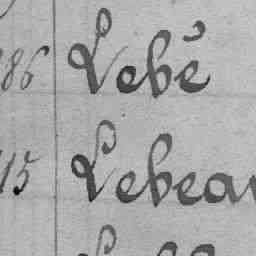 86 Lebé
115 Lebeau